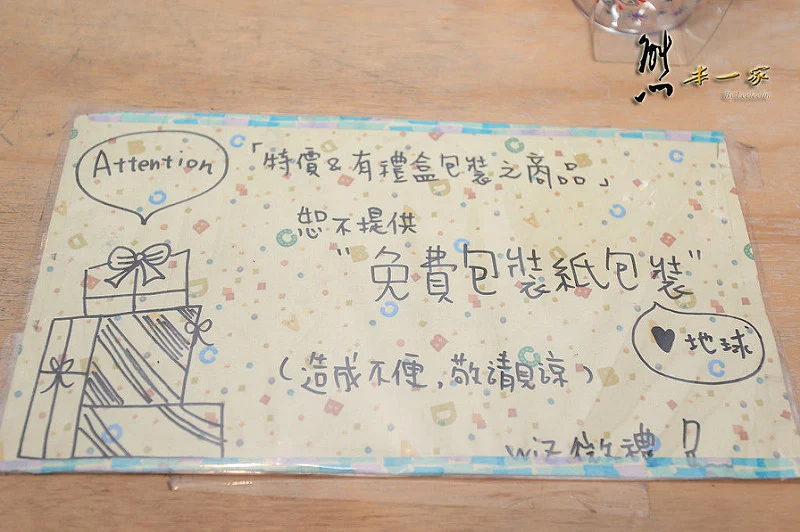 熊 米一家
Attention
「特價&有禮盒包裝之商品」
恕不提供
"免費包裝紙包裝"
♥地球
(造成不便,敬請見諒)
wiz 微禮